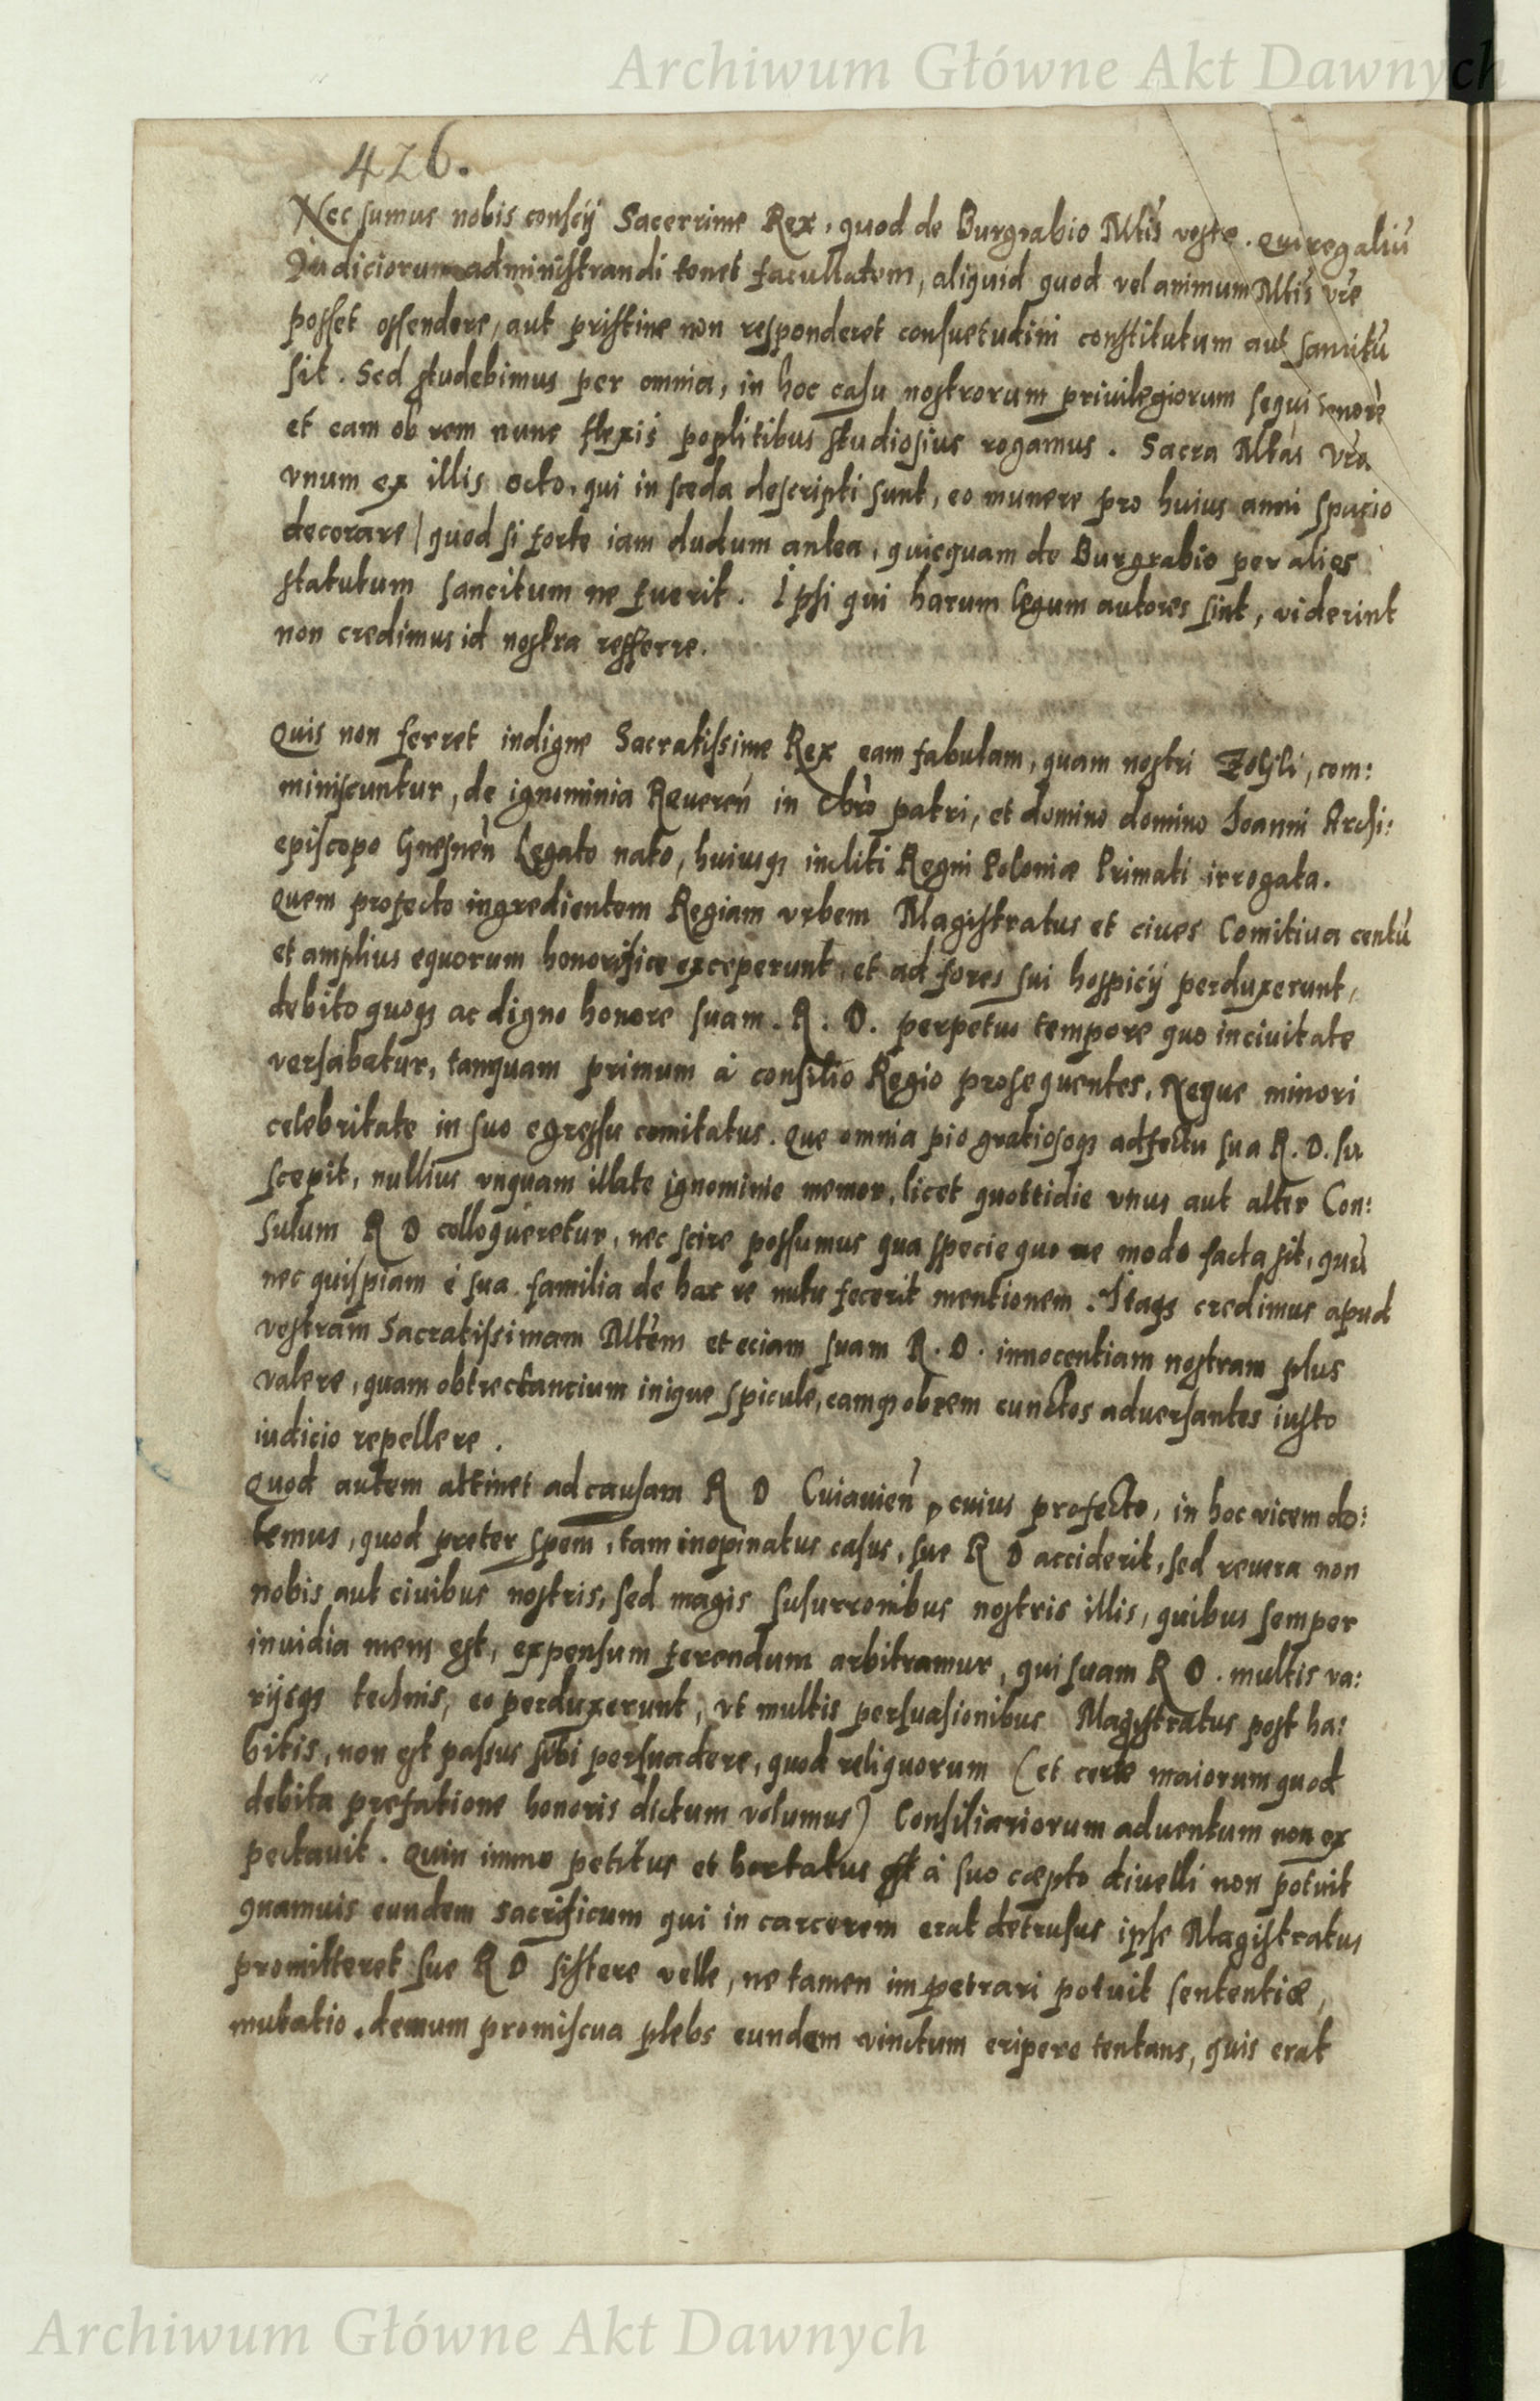 Archiwum Główne Akt Dawnych
426.
Nec sumus nobis conscij Sacerrime Rex, quod de Burgrabio Mtis vestre. qui regaliū
Judiciorum administrandi tenet facultatem, aliquid quod vel animum Mtis vre
posset offendere, aut pristine non responderet consuetudini constitutum aut sancitū
sit. Sed studebimus per omnia, in hoc casu nostrorum privilegiorum sequi tenorē
et eam ob rem nunc flexis poplitibus studiosius rogamus. Sacra Mtas vra
vnum ex illis octo, qui in sceda descripti sunt, eo munere pro huius anni spacio
decorare / quod si forte iam dudum antea, quicquam de Burgrabio per alios
statutum sancitum ne fuerit. Ipsi qui harum legum autores sint, viderint
non credimus id nostra refferre.
Quis non ferret indigne Sacratissime Rex eam fabulam, quam nostri Zoili, com:
miniscuntur, de ignominia Reueren in Chro patri, et domino domino Ioanni Archi:
episcopo Gnesnen Legato nato, huiusq incliti Regni Poloniæ Primati irrogata.
Quem profecto ingredientem Regiam vrbem Magistratus et ciues Comitiua centū
et amplius equorum honorifice exceperunt, et ad fores sui hospicij perduxerunt,
debito quoq ac digno honore suam. R. D. perpetuo tempore quo in ciuitate
versabatur, tanquam primum à consilio Regio prosequentes, Neque minori
celebritate in suo egressu comitatus. Que omnia pio gratiosoq adfectu sua R. D. su
scepit, nullius vnquam illate ignominie memor, licet quottidie vnus aut alter Con:
sulum R D colloqueretur, nec scire possumus qua specie quo ue modo facta sit, quū
nec quispiam è sua familia de hac re nutu fecerit mentionem. Itaq credimus apud
vestram Sacratissimam Mtem et eciam suam R. D. innocentiam nostram plus
valere, quam obtrectancium inique spicule, eamq obrem cunctos aduersantes iusto
iudicio repellere.
Quod autem attinet ad causam R D Cuiauien, cuius profecto, in hoc vicem do:
lemus, quod preter spem, tam inopinatus casus, sue R D acciderit, sed reuera non
nobis aut ciuibus nostris, sed magis susurronibus nostris illis, quibus semper
inuidia mens est, expensum ferendum arbitramur, qui suam R D. multis va:
rijsq technis, eo perduxerunt, vt multis persuasionibus Magistratus post ha:
bitis, non est passus sibi persuadere, quod reliquorum (et certe maiorum quod
debita prefatione honoris dictum volumus) Consiliariorum aduentum non ex
pectauit. Quin immo petitus et hortatus est à suo cæpto diuelli non potuit
quamuis eundem sacrificum qui in carcerem erat detrusus ipse Magistratus
promitteret sue R D sistere velle, ne tamen impetrari potuit sententiæ,
mutatio. demum promiscua plebs eundem vinctum eripere tentans, quis erat
Archiwum Główne Akt Dawnych